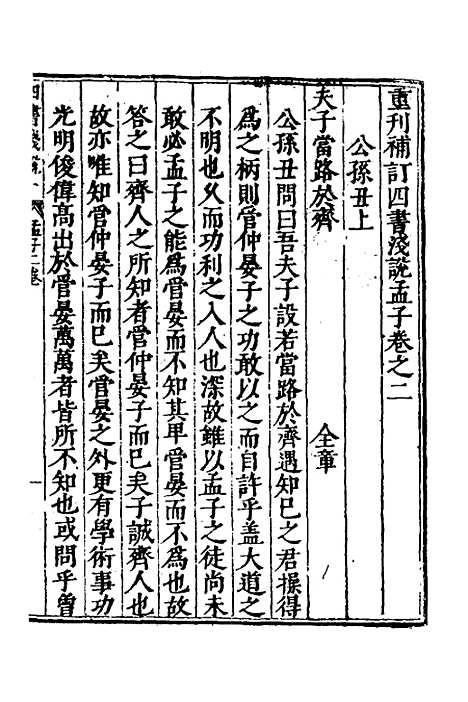 重刊補訂四書淺說孟子卷之二
公孫丑上
夫子當路於齊 全章
公孫丑問曰吾夫子設若當路於齊遇知已之君操得
爲之柄則管仲晏子之功敢以之而自許乎盖大道之
不明也久而功利之入人也深故雖以孟子之徒尚未
敢必孟子之能爲管晏而不知其卑管晏而不爲也故
答之曰齊人之所知者管仲晏子而已矣子誠齊人也
故亦惟知管仲晏子而已矣管晏之外更有學術事功
光明俊偉高出於管晏萬萬者皆所不知也或問乎曾
四書淺說 孟子二卷 一